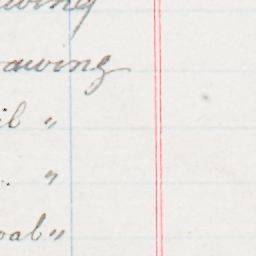 awing
rawing
il "
. "
oal "